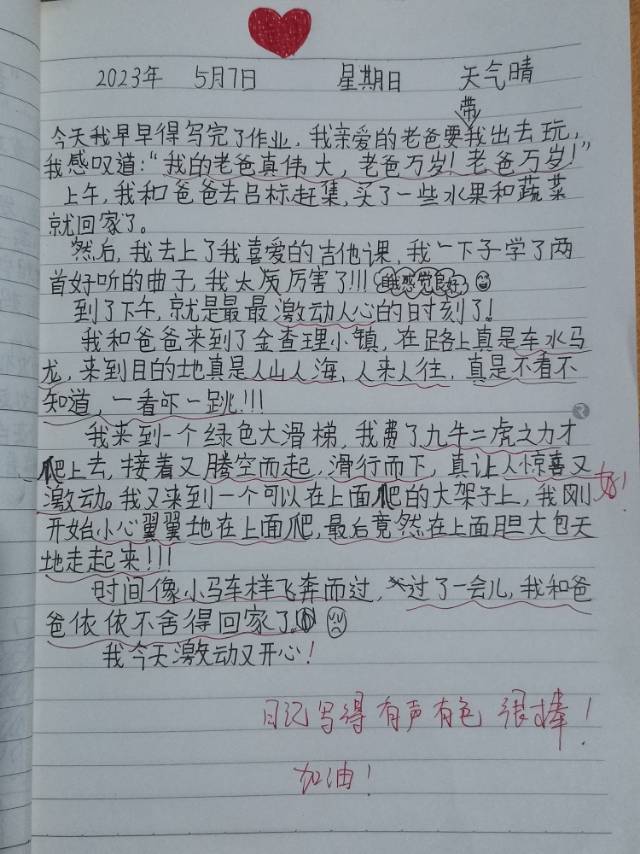 2023年 5月7日 星期日 天气晴
今天我早早得写完了作业，我亲爱的老爸要带我出去玩，
我感叹道：“我的老爸真伟大，老爸万岁！老爸万岁！”
上午，我和爸爸去吕标赶集，买了一些水果和蔬菜
就回家了。
然后，我去上了我喜爱的吉他课，我一下子学了两
首好听的曲子，我太厉害了!!!（自我感觉良好）
到了下午，就是最最激动人心的时刻了！
我和爸爸来到了金查理小镇，在路上真是车水马
龙，来到目的地真是人山人海，人来人往，真是不看不
知道，一看吓一跳!!!
我来到一个绿色大滑梯，我费了九牛二虎之力才
爬上去，接着又腾空而起，滑行而下，真让人惊喜又
激动。我又来到一个可以在上面爬的大架子上，我刚
好！
开始小心翼翼地在上面爬，最后竟然在上面胆大包天
地走起来!!!
时间像小马车样飞奔而过，过了一会儿，我和爸
爸依依不舍得回家了。
我今天激动又开心！
日记写得有声有色 很棒！
加油！